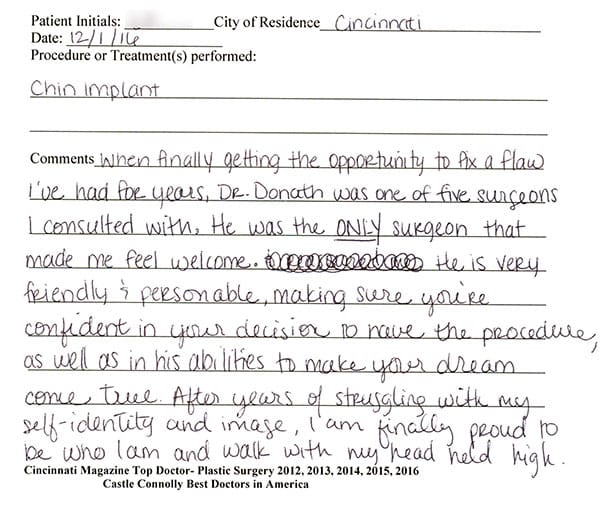 Patient Initials: City of Residence Cincinnati
Date: 12/1/16
Procedure or Treatment(s) performed:
Chin Implant
Comments When finally getting the opportunity to fix a flaw
I've had for years, Dr. Donath was one of five surgeons
I consulted with. He was the ONLY surgeon that
made me feel welcome. He is very
friendly & personable, making sure you're
confident in your decision to have the procedure,
as well as in his abilities to make your dream
come true. After years of struggling with my
self-identity and image, I am finally proud to
be who I am and walk with my head held high.
Cincinnati Magazine Top Doctor- Plastic Surgery 2012, 2013, 2014, 2015, 2016
Castle Connolly Best Doctors in America